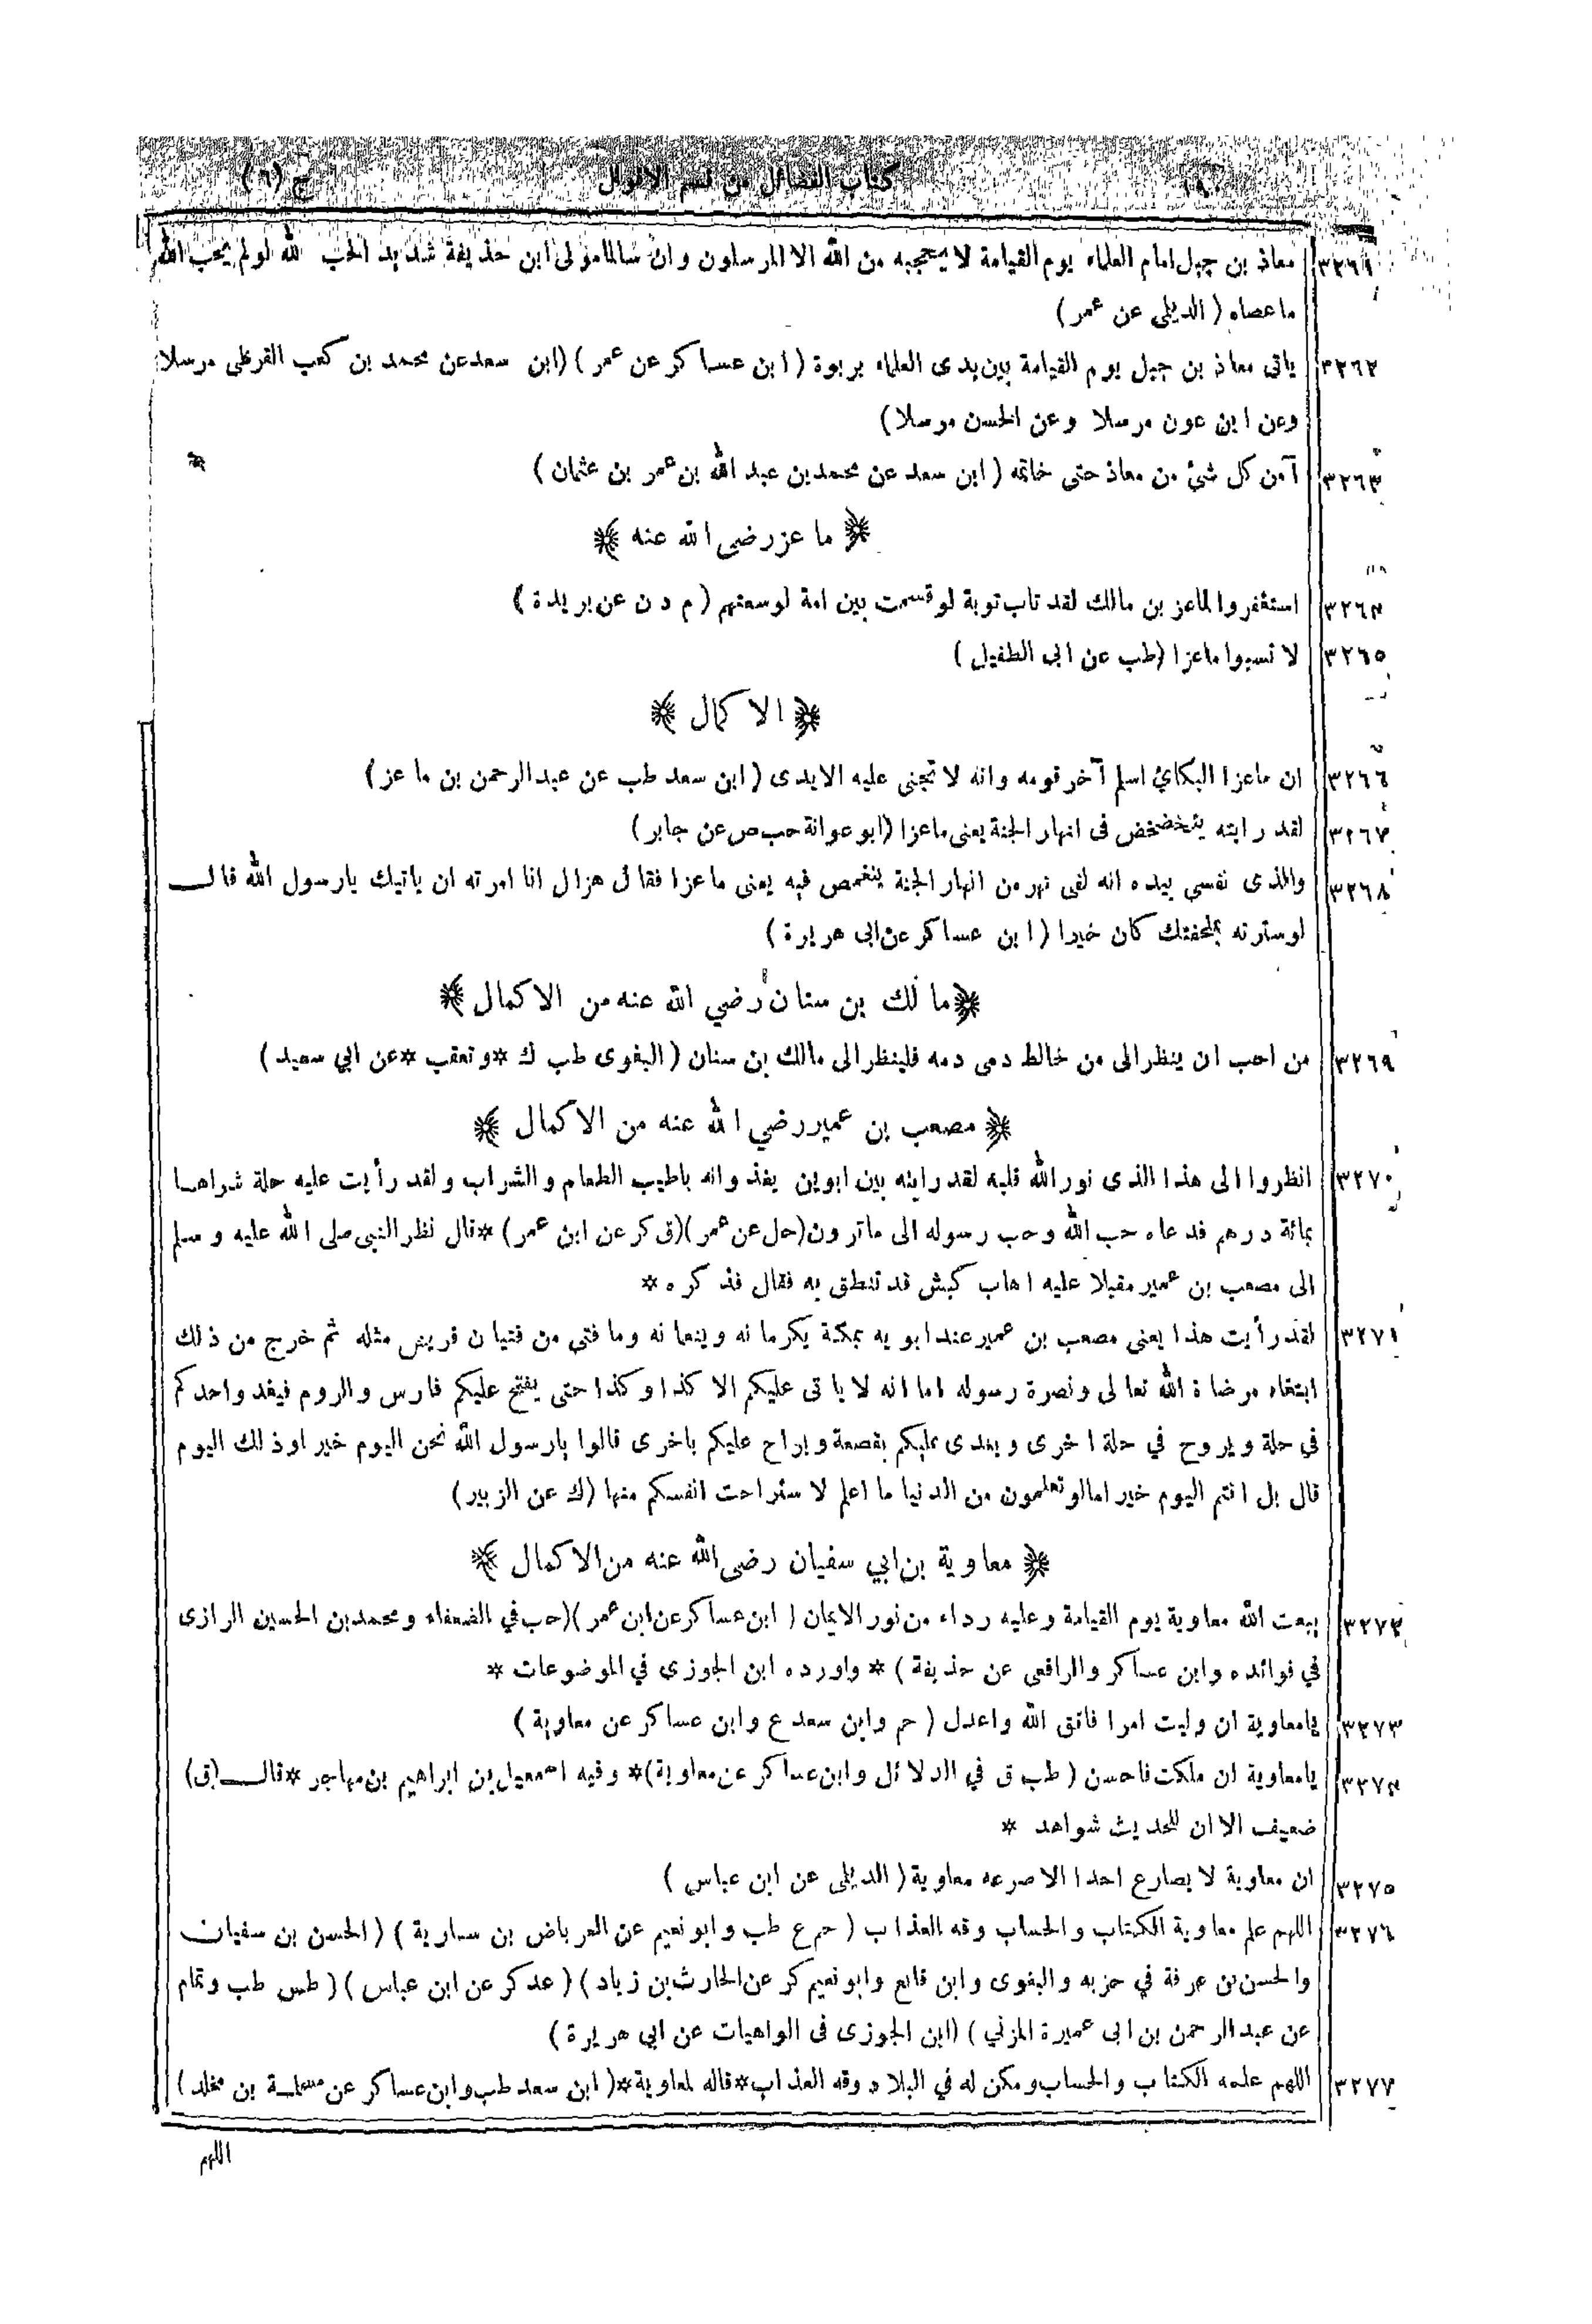 كتاب الفضائل من قسم الاقوال ج (٦)
٣٢٦١ معاذ بن جبل امام العلماء يوم القيامة لا يحجبه من الله الا المرسلون وان سالما مولى ابن حذيفة شديد الحب لله لو لم يحب الله
ما عصاه (الديلمى عن عمر)
٣٢٦٢ ياتى معاذ بن جبل يوم القيامة بين يدى العلماء بربوة (ابن عساكر عن عمر) (ابن سعد عن محمد بن كعب القرظى مرسلا
وعن ابن عون مرسلا وعن الحسن مرسلا)
٣٢٦٣ آمن كل شئ من معاذ حتى خاتمه (ابن سعد عن محمد بن عبد الله بن عمر بن عثمان)
﴿ ماعز رضى الله عنه ﴾
٣٢٦٤ استغفروا لماعز بن مالك لقد تاب توبة لو قسمت بين امة لوسعتهم (م د ن عن بريدة)
٣٢٦٥ لا تسبوا ماعزا (طب عن ابى الطفيل)
﴿ الاكمال ﴾
٣٢٦٦ ان ماعزا البكائ اسلم آخر قومه وانه لا تجنى عليه الايدى (ابن سعد طب عن عبد الرحمن بن ماعز)
٣٢٦٧ لقد رايته يتخضخض فى انهار الجنة يعنى ماعزا (ابو عوانة حب ص عن جابر)
٣٢٦٨ والذى نفسى بيده انه لفى نهر من انهار الجنة ينغمص فيه يعنى ماعزا فقال هزال انا امرته ان ياتيك يارسول الله قال
لو سترته بملحفتك كان خيرا (ابن عساكر عن ابى هريرة)
﴿ مالك بن سنان رضي الله عنه من الاكمال ﴾
٣٢٦٩ من احب ان ينظر الى من خالط دمى دمه فلينظر الى مالك بن سنان (البغوى طب ك *وتعقب *عن ابي سعيد)
﴿ مصعب بن عمير رضي الله عنه من الاكمال ﴾
٣٢٧٠ انظروا الى هذا الذى نور الله قلبه لقد رايته بين ابوين يغذوانه باطيب الطعام والشراب ولقد رأيت عليه حلة شراها
بمائة درهم فدعاه حب الله وحب رسوله الى ماترون (حل عن عمر) (ق كر عن ابن عمر) *قال نظر النبى صلى الله عليه وسلم
الى مصعب بن عمير مقبلا عليه اهاب كبش قد تنطق به فقال فذكره *
٣٢٧١ لقد رأيت هذا يعنى مصعب بن عمير عند ابويه بمكة يكرمانه وينعمانه وما فتى من فتيان قريش مثله ثم خرج من ذلك
ابتغاء مرضاة الله تعالى ونصرة رسوله اما انه لا ياتى عليكم الا كذا وكذا حتى يفتح عليكم فارس والروم فيغدو احدكم
في حلة ويروح في حلة اخرى ويغدى عليكم بقصعة ويراح عليكم باخرى قالوا يارسول الله نحن اليوم خير او ذلك اليوم
قال بل انتم اليوم خير اما لو تعلمون من الدنيا ما اعلم لاستراحت انفسكم منها (ك عن الزبير)
﴿ معاوية بن ابي سفيان رضى الله عنه من الاكمال ﴾
٣٢٧٢ يبعث الله معاوية يوم القيامة وعليه رداء من نور الايمان (ابن عساكر عن ابن عمر) (حب في الضعفاء ومحمد بن الحسين الرازى
في فوائده وابن عساكر والرافعى عن حذيفة) * واورده ابن الجوزى في الموضوعات *
٣٢٧٣ يامعاوية ان وليت امرا فاتق الله واعدل (حم وابن سعد ع وابن عساكر عن معاوية)
٣٢٧٤ يامعاوية ان ملكت فاحسن (طب ق في الدلائل وابن عساكر عن معاوية)* وفيه اسمعيل بن ابراهيم بن مهاجر *قال (ق)
ضعيف الا ان للحديث شواهد *
٣٢٧٥ ان معاوية لا يصارع احدا الا صرعه معاوية (الديلمى عن ابن عباس)
٣٢٧٦ اللهم علم معاوية الكتاب والحساب وقه العذاب (حم ع طب وابو نعيم عن العرباض بن سارية) (الحسن بن سفيان
والحسن بن عرفة في جزبه والبغوى وابن قانع وابو نعيم كر عن الحارث بن زياد) (عد كر عن ابن عباس) (طس طب وتمام
عن عبد الرحمن بن ابى عميرة المزني) (ابن الجوزى فى الواهيات عن ابي هريرة)
٣٢٧٧ اللهم علمه الكتاب والحساب ومكن له في البلاد وقه العذاب*قاله لمعاوية*(ابن سعد طب وابن عساكر عن مسلمة بن مخلد)
اللهم